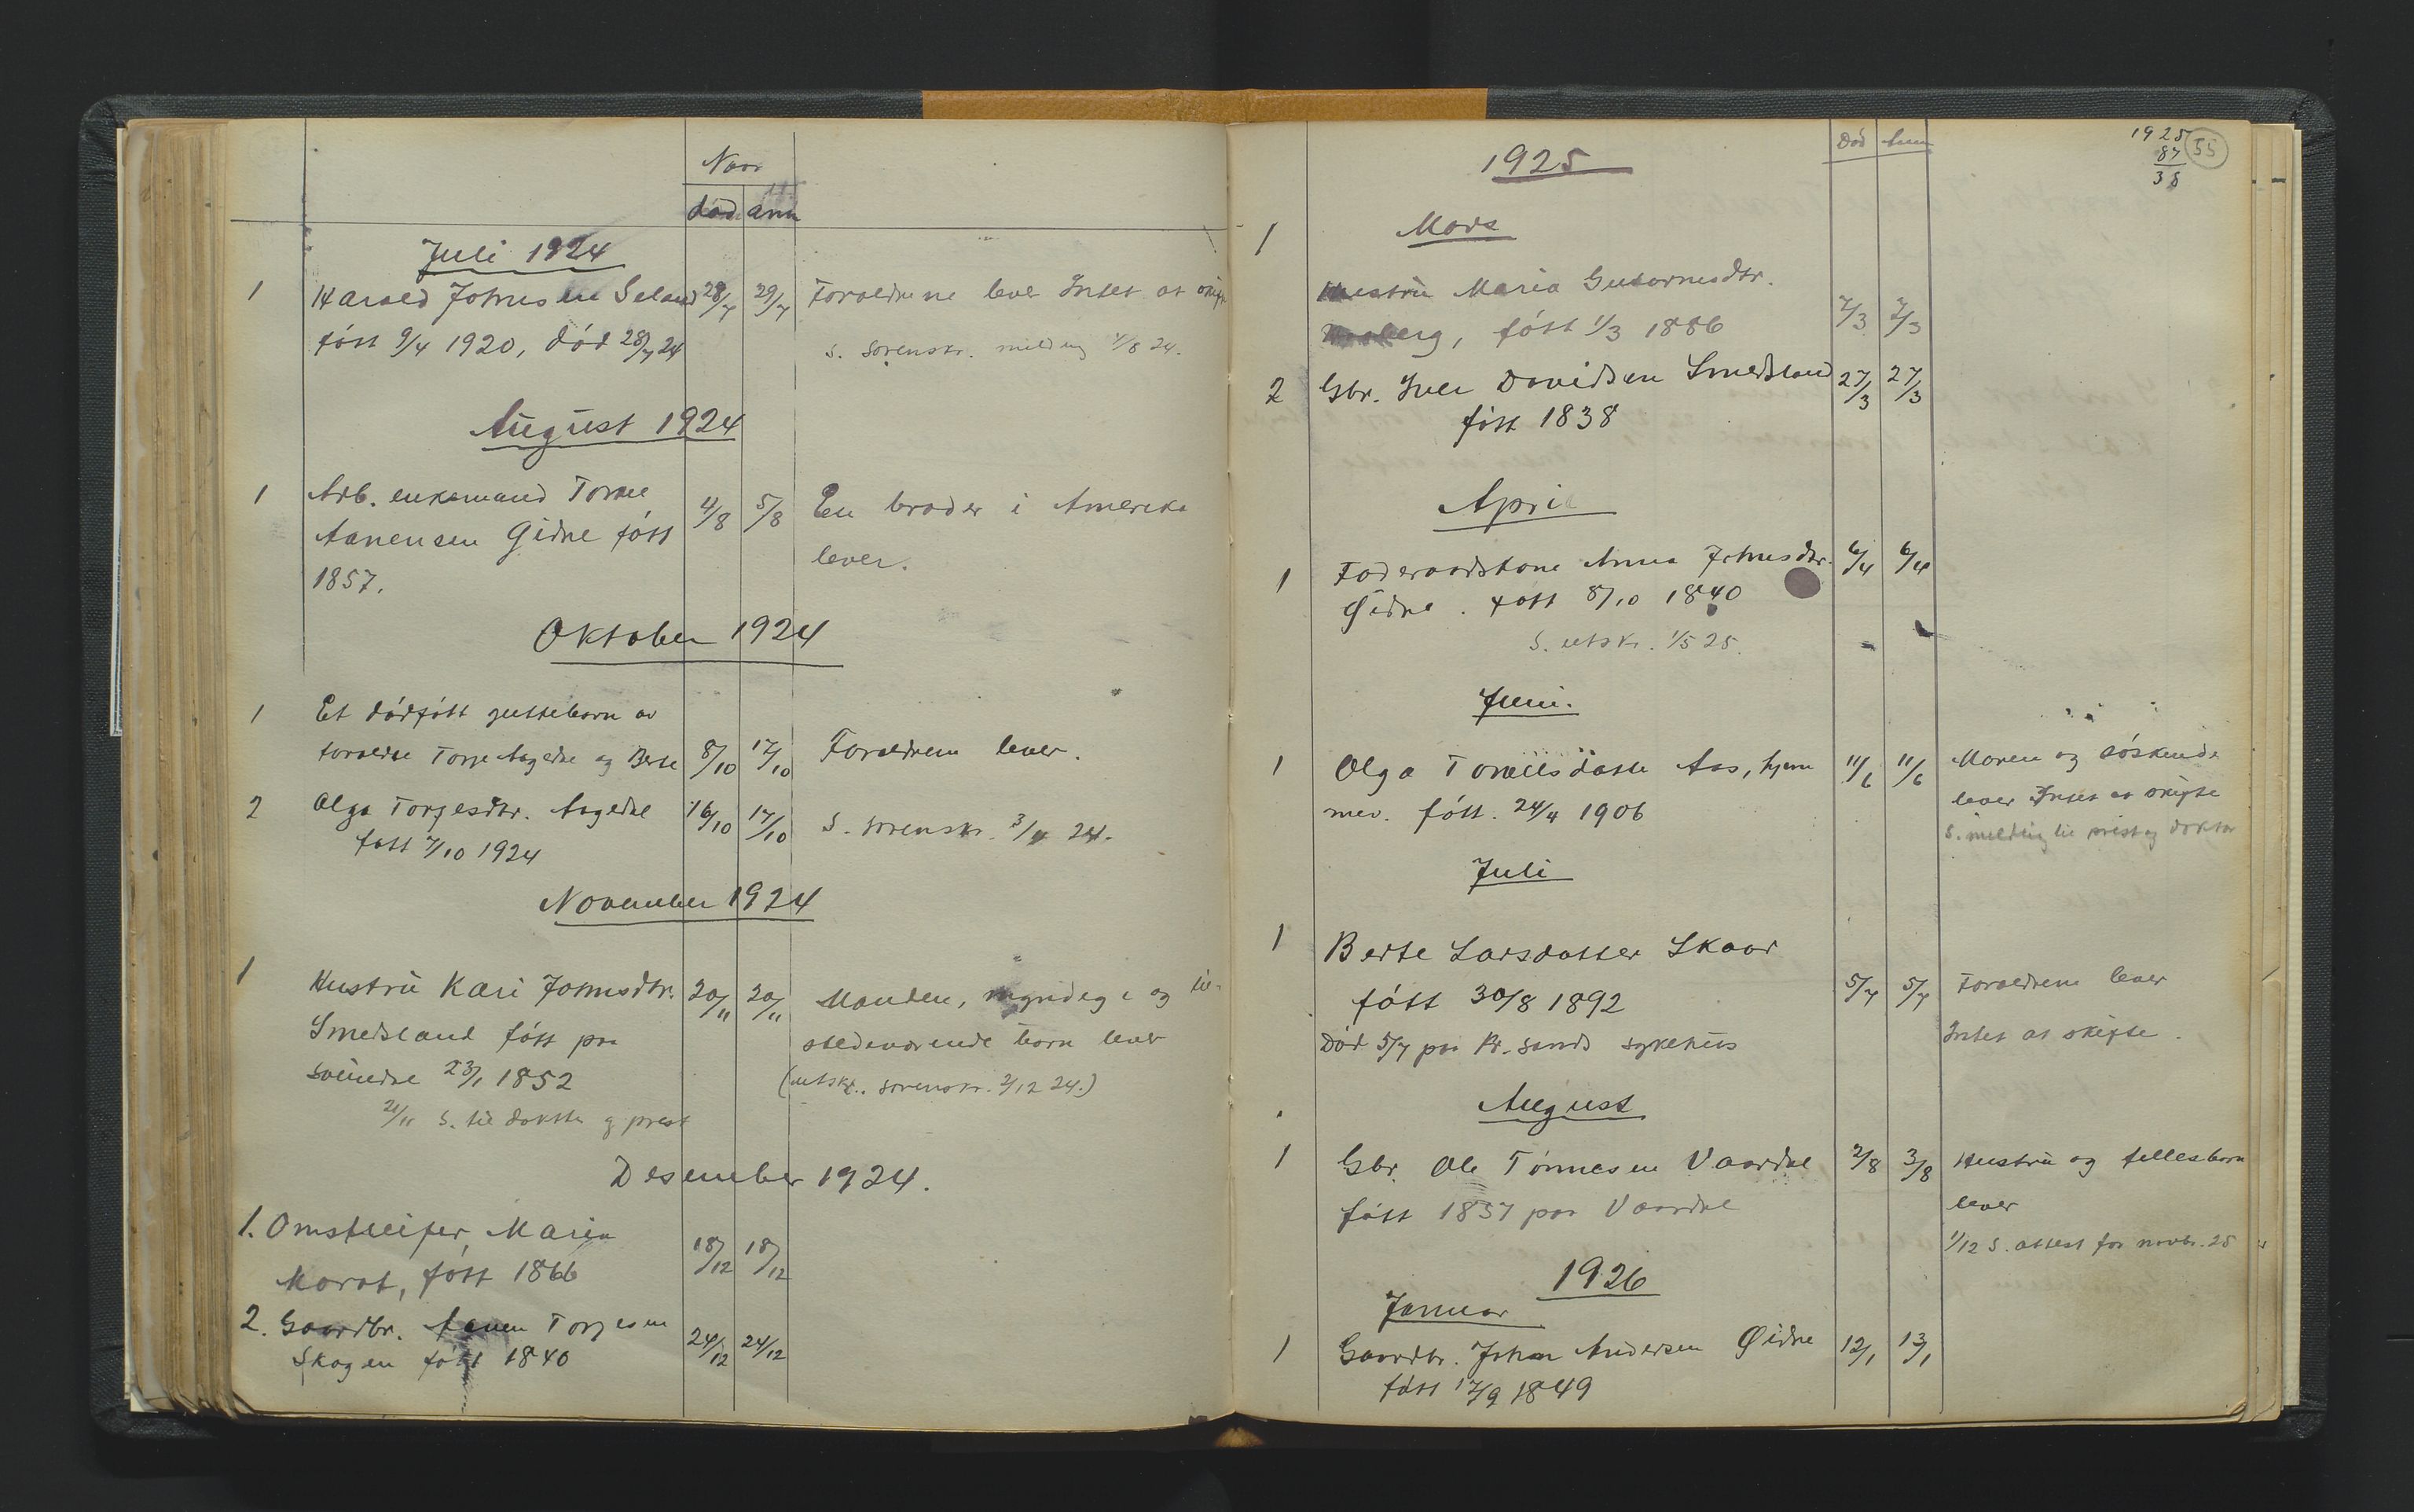 Naar
død ann
Juli 1924
1 Harald Johnsen Seland 28/7 29/7 Foraeldrene lever Intet at skifte
født 9/4 1920, død 28/7 24 S. sorenskr. melding 1/8 24.
August 1924
1 Arb. enkemand Torme 4/8 5/8 En broder i Amerika
Aanensen Gidne født lever.
1857.
Oktober 1924
1 Et dødfött guttebarn av
foraeldre Torje Aagedal og Berte 8/10 17/10 Foraeldrene lever.
2 Olga Torjesdtr. Aagedal 16/10 17/10 S. sorenskr. 3/11 24.
født 7/10 1924
November 1924
1 Hustru Kari Johnsdtr. 20/11 20/11 Manden, myndige og til-
Smedsland født paa stedevaerende barn lever
Sveindal 23/1 1852 (utskr. sorenskr. 2/12 24.)
21/11 S. til doktor og prest
Desember 1924.
1. Omstreifer, Maria 18/12 18/12
Morot, født 1866
2. Gaardbr. Aanen Torjesen 24/12 24/12
Skogen født 1840
1925 Død Ann 1925
87
38
55
1 Mars
Hustru Maria Guttormsdtr.
født 1/3 1886 7/3 7/3
2 Gbr. Iver Davidsen Smedsland 27/3 27/3
født 1838
April
1 Føderaadskone Anna Johnsdtr. 6/4 6/4
Øidne. født 8/10 1840
S. utskr. 1/5 25.
Juni.
1 Olga Torkilsdatter Aas, hjem 11/6 11/6 Moren og søskende
mev. født. 24/4 1906 lever Intet at skifte
S. melding til prest og doktor
Juli
1 Berte Larsdatter Skaar
født 30/8 1892 5/7 5/7 Foraeldrene lever
Død 5/7 paa Kr.sands sykehus Intet at skifte.
August
1 Gbr. Ole Tønnesen Vaardal 2/8 3/8 Hustru og fellesbarn
født 1857 paa Vaardal lever
1/12 S. attest for novbr. 25
1926
Januar
1 Gaardbr. Johan Andersen Øidne 12/1 13/1
født 17/9 1849